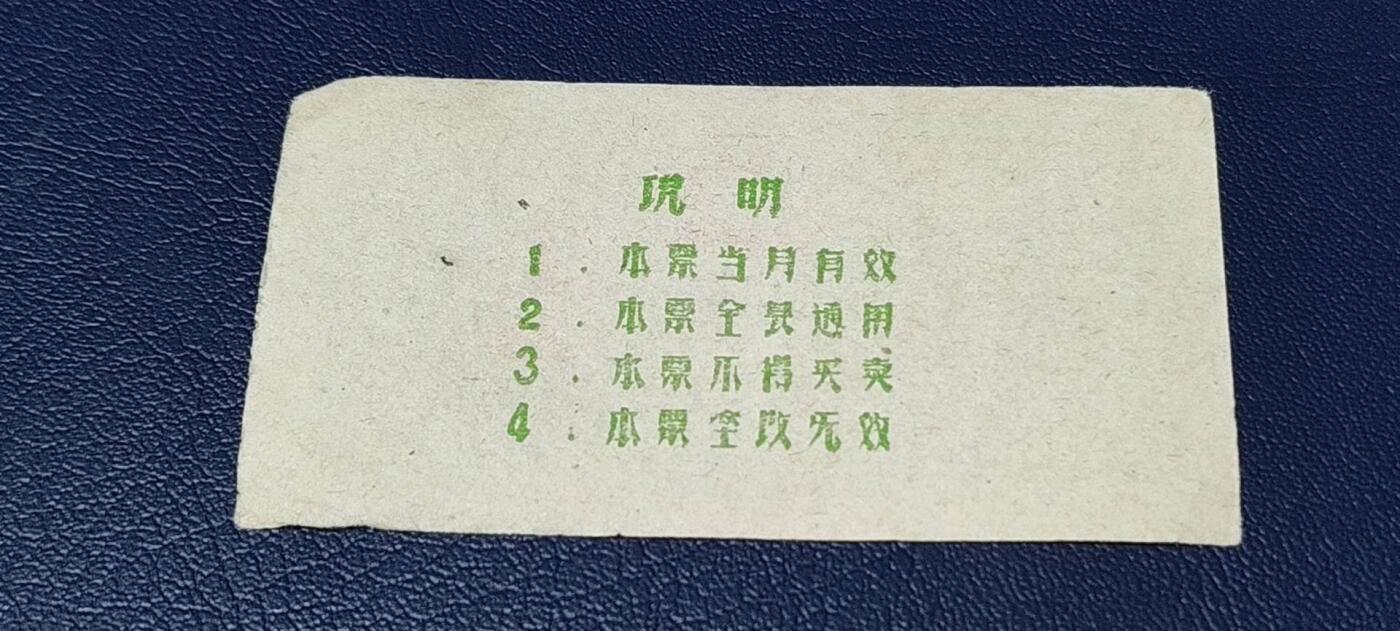 说明
1.本票当月有效
2.本票全县通用
3.本票不得买卖
4.本票涂改无效